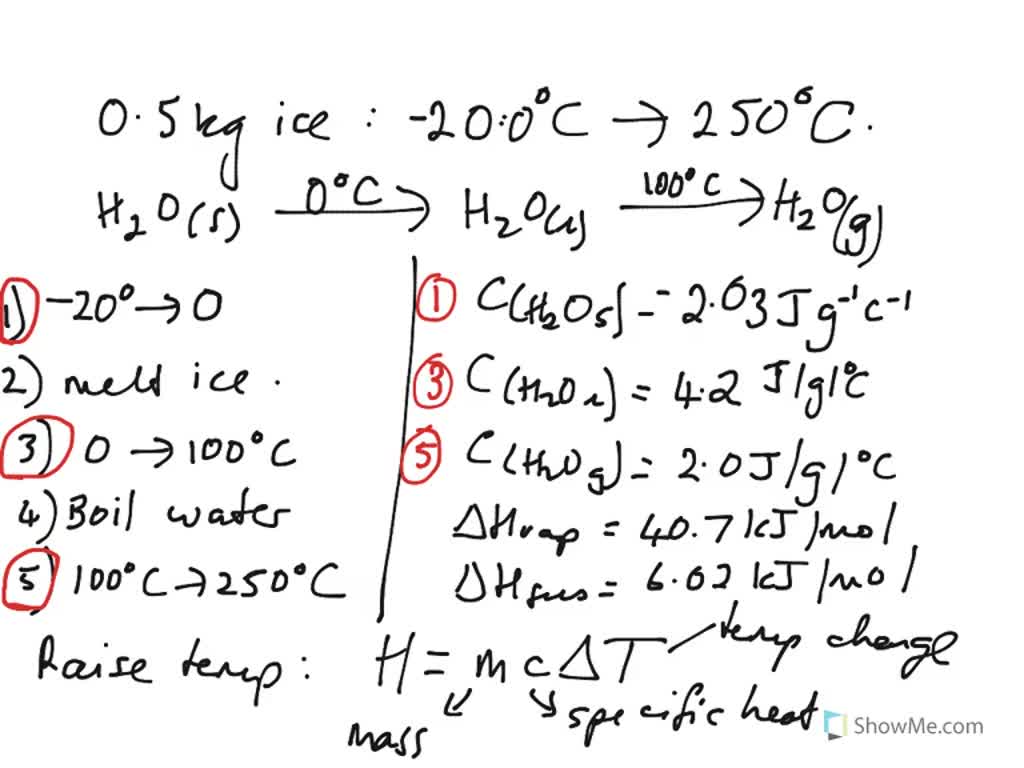 0.5 kg ice : -20.0°C → 250°C.
H₂O(s) 0°C → H₂O(l) 100°C → H₂O(g)
1) -20° → 0
2) melt ice.
3) 0 → 100°C
4) Boil water
5) 100°C → 250°C
① C(H₂O s) = 2.03 J g⁻¹ c⁻¹
③ C(H₂O l) = 4.2 J/g/°C
⑤ C(H₂O g) = 2.0 J/g/°C
ΔHvap = 40.7 kJ/mol
ΔHfus = 6.02 kJ/mol
Raise temp: H = m c ΔT temp change
mass specific heat
ShowMe.com